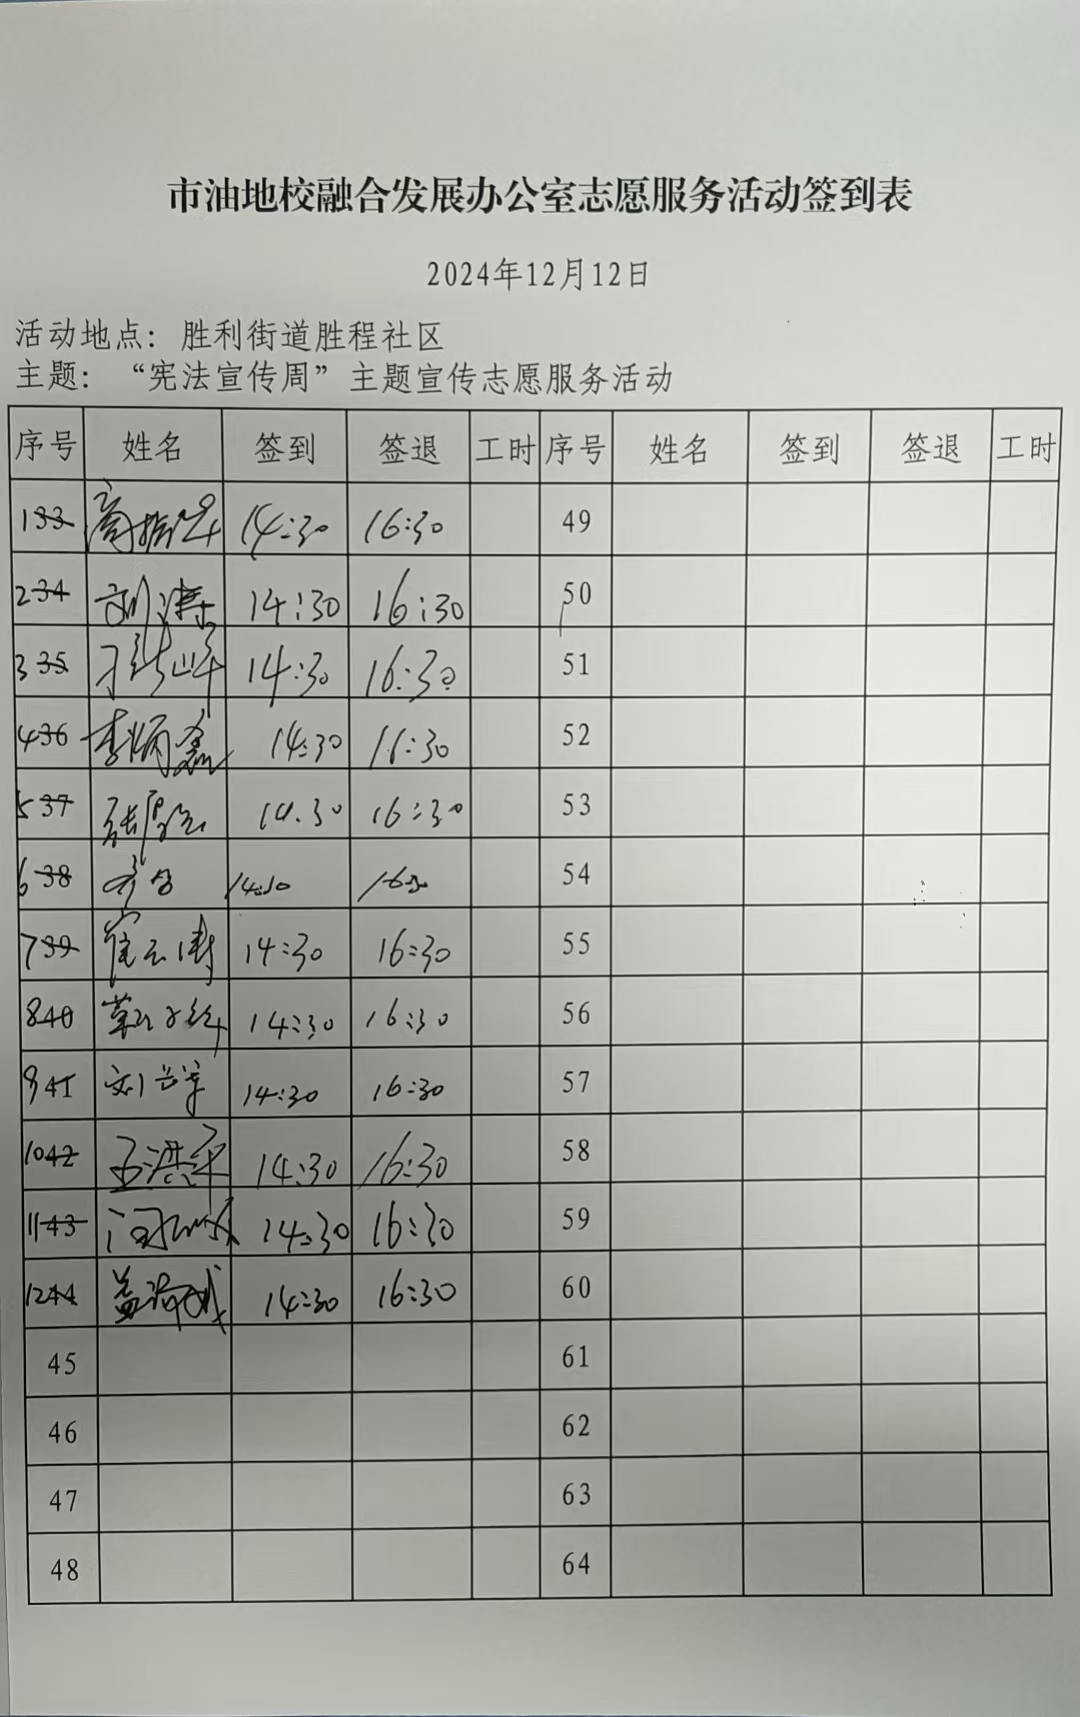 市油地校融合发展办公室志愿服务活动签到表
2024年12月12日
活动地点：胜利街道胜程社区
主题：“宪法宣传周”主题宣传志愿服务活动
序号 姓名 签到 签退 工时 序号 姓名 签到 签退 工时
1 33 14:30 16:30 49
2 34 刘涛 14:30 16:30 50
3 35 14:30 16:30 51
4 36 李炳鑫 14:30 16:30 52
5 37 14.30 16:30 53
6 38 54
7 39 崔云涛 14:30 16:30 55
8 40 14:30 16:30 56
9 41 14:30 16:30 57
10 42 14:30 16:30 58
11 43 14:30 16:30 59
12 44 14:30 16:30 60
45 61
46 62
47 63
48 64